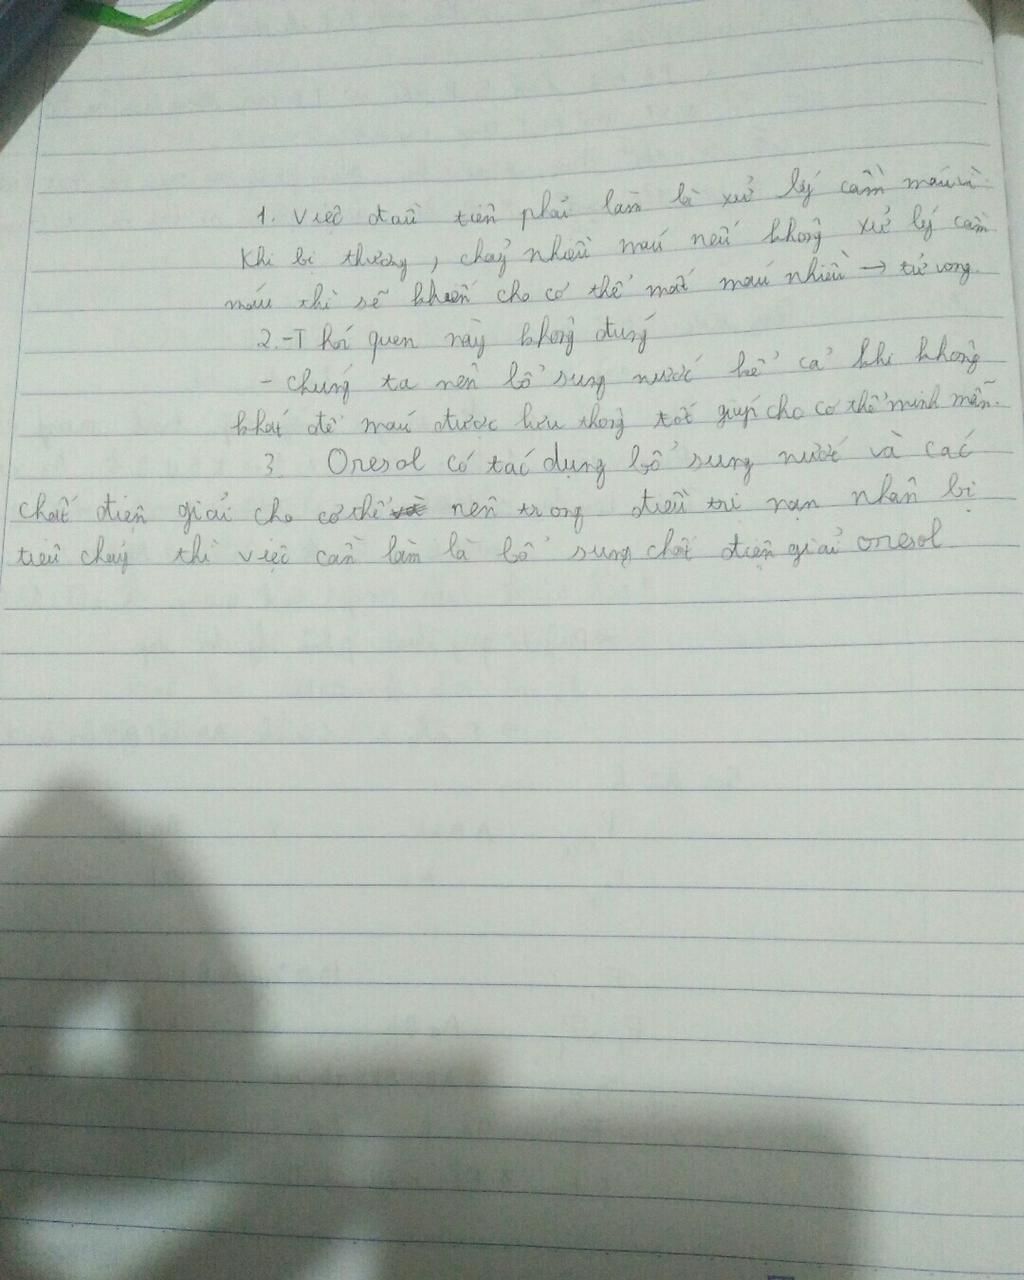 1. Việc đầu tiên phải làm là xử lý cầm máu vì
Khi bị thương, chảy nhiều máu nếu không xử lý cầm
máu thì sẽ khiến cho cơ thể mất máu nhiều → tử vong.
2. - Thói quen này không đúng
- chúng ta nên bổ sung nước kể cả khi không
khát để máu được lưu thông tốt giúp cho cơ thể minh mẫn.
3. Oresol có tác dụng bổ sung nước và các
chất điện giải cho cơ thể nên trong điều trị nạn nhân bị
tiêu chảy thì việc cần làm là bổ sung chất điện giải oresol